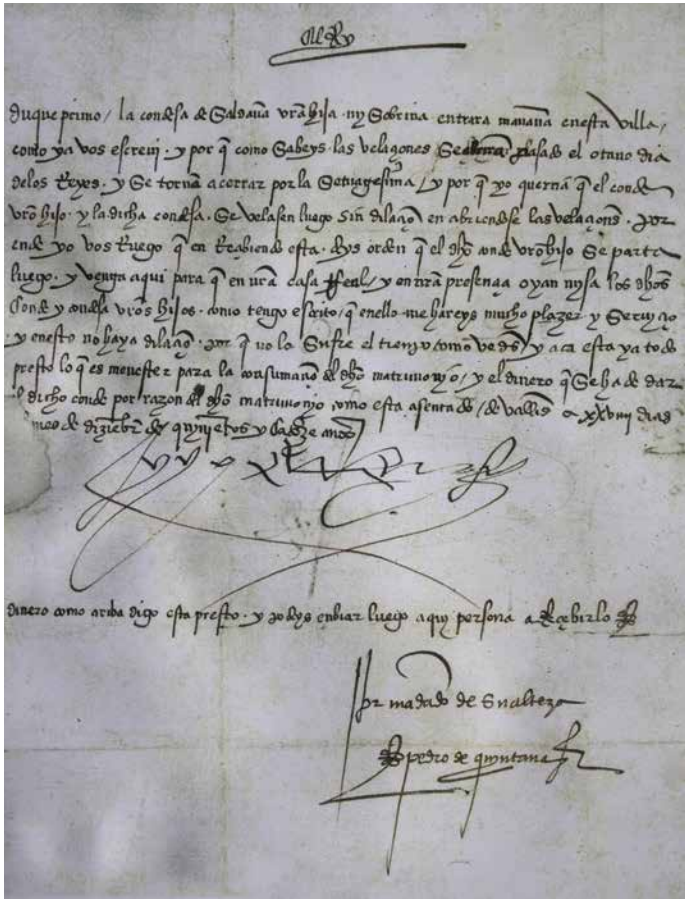 El Rey
duque primo / la condesa de Saldaña vra hija my Sobrina entrara mañana enesta villa /
como ya vos escrevi · y por q̄ como Sabeys las velaçones Se abrirā pasado el otavo dia
delos Reyes · y Se tornā acerrar por la Setuagesima / y por q̄ yo querria q̄ el conde
vrō hijo · y la dicha condesa · Se velasen luego sin dilaçoˉ en abriendose las velaçoneˢ · por
ende yo vos Ruego q̄ en Reçibiendo esta · deys orden q̄ el dho conde vrō hijo Se parta
luego · y venga aqui para q̄ en nrā casa Real / y en nrā presençia oyan mysa los dhos
Conde y condesa vrōs hijos · como tengo escrito / q̄ enello me hareys mucho plazer y Serviçio
· y enesto no haya dilaçoˉ · por q̄ no la Sufre el tiempo como vedˢ / y aca esta ya todo
presto lo q̄ es menester para la consumaçoˉ del dho matrimonyo / y el dinero q̄ Se ha de dar
al dicho conde por razon del dho matrimonyo como esta asentado / de vallid a xxviii dias
mes de dizienbrˢ de quynyētos y Catorze anos
yo el Rey
dinero como ariba digo esta presto · y podeys enbiar luego aquy persona a Reçebirlo
Por mādado de Su alteza
pedro de quintana